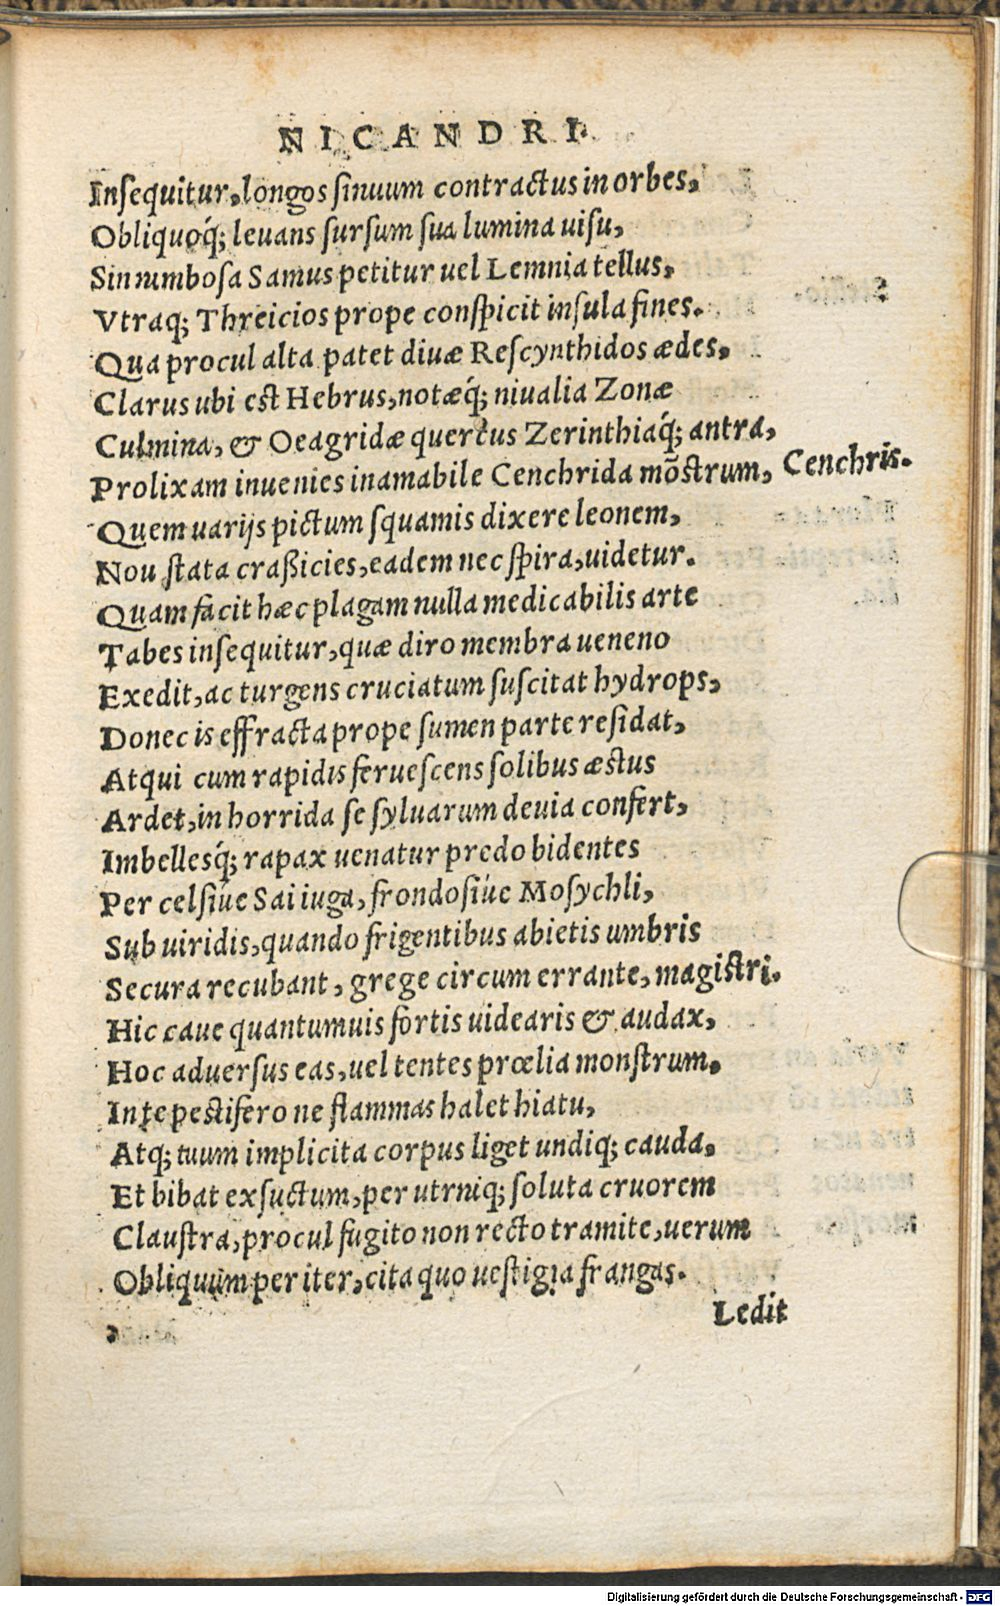 NICANDRI
Insequitur, longos sinuum contractus in orbes,
Obliquoq́; levans sursum sua lumina uisu,
Sin rumbosa Samus petitur uel Lemnia tellus,
Vtraq; Threicios prope conspicit insula fines.
Qua procul alta patet diuæ Rescynthidos ædes,
Clarus ubi est Hebrus, notæq́; niualia Zonæ
Culmina, & Oeagridæ quercus Zerinthiaq́; antra,
Prolixam inuenies inamabile Cenchrida mōstrum, Cenchris.
Quem uarijs pictum squamis dixere leonem,
Nou stata craßicies, eadem nec spira, uidetur.
Quam facit hæc plagam nulla medicabilis arte
Tabes insequitur, quæ diro membra ueneno
Exedit, ac turgens cruciatum suscitat hydrops,
Donec is effracta prope sumen parte residat,
Atqui cum rapidis feruescens solibus æstus
Ardet, in horrida se syluarum deuia confert,
Imbellesq́; rapax uenatur predo bidentes
Per celsiúe Sai iuga, frondosiúe Mosychli,
Sub uiridis, quando frigentibus abietis umbris
Secura recubant, grege circum errante, magistri.
Hic caue quantumuis fortis uidearis & audax,
Hoc aduersus eas, uel tentes prœlia monstrum.
In te pestifero ne flammas halet hiatu,
Atq; tuum implicita corpus liget undiq; cauda,
Et bibat exsuctum, per utrniq; soluta cruorem
Claustra, procul fugito non recto tramite, uerum
Obliquum per iter, cita quo uestigia frangas.
Ledit
Digitalisierung gefördert durch die Deutsche Forschungsgemeinschaft - DFG